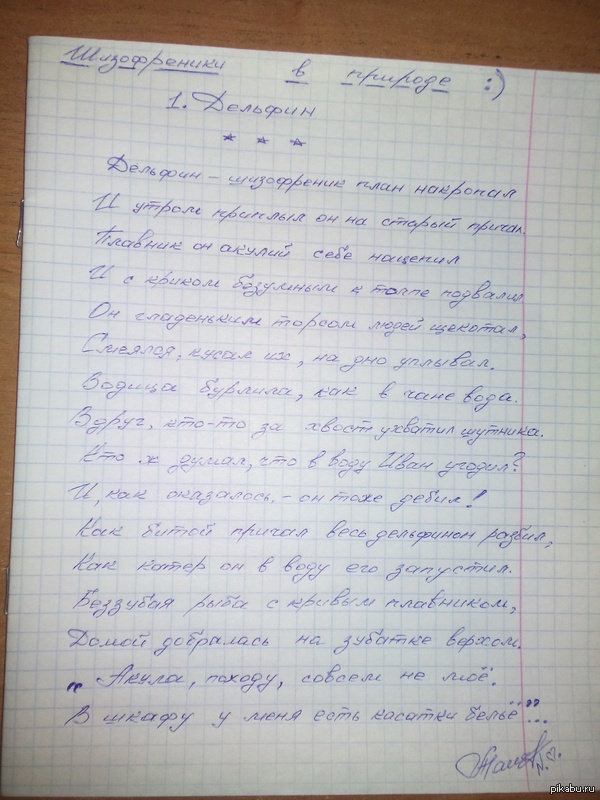 Шизофреники в природе :)
1. Дельфин
* * *
Дельфин – шизофреник план накропал
И утром приплыл он на старый причал.
Плавник он акулий себе нацепил
И с криком безумным к толпе подвалил
Он гладеньким торсом людей щекотал,
Смеялся, кусал их, на дно уплывал.
Водица бурлила, как в чане вода.
Вдруг, кто-то за хвост ухватил шутника.
Кто ж думал, что в воду Иван угодил?
И, как оказалось, – он тоже дебил!
Как битой причал весь дельфином разбил,
Как катер он в воду его запустил.
Беззубая рыба с кривым плавником,
Домой добралась на зубатке верхом.
„ Акула, походу, совсем не моё.
В шкафу у меня есть касатки бельё"...
pikabu.ru